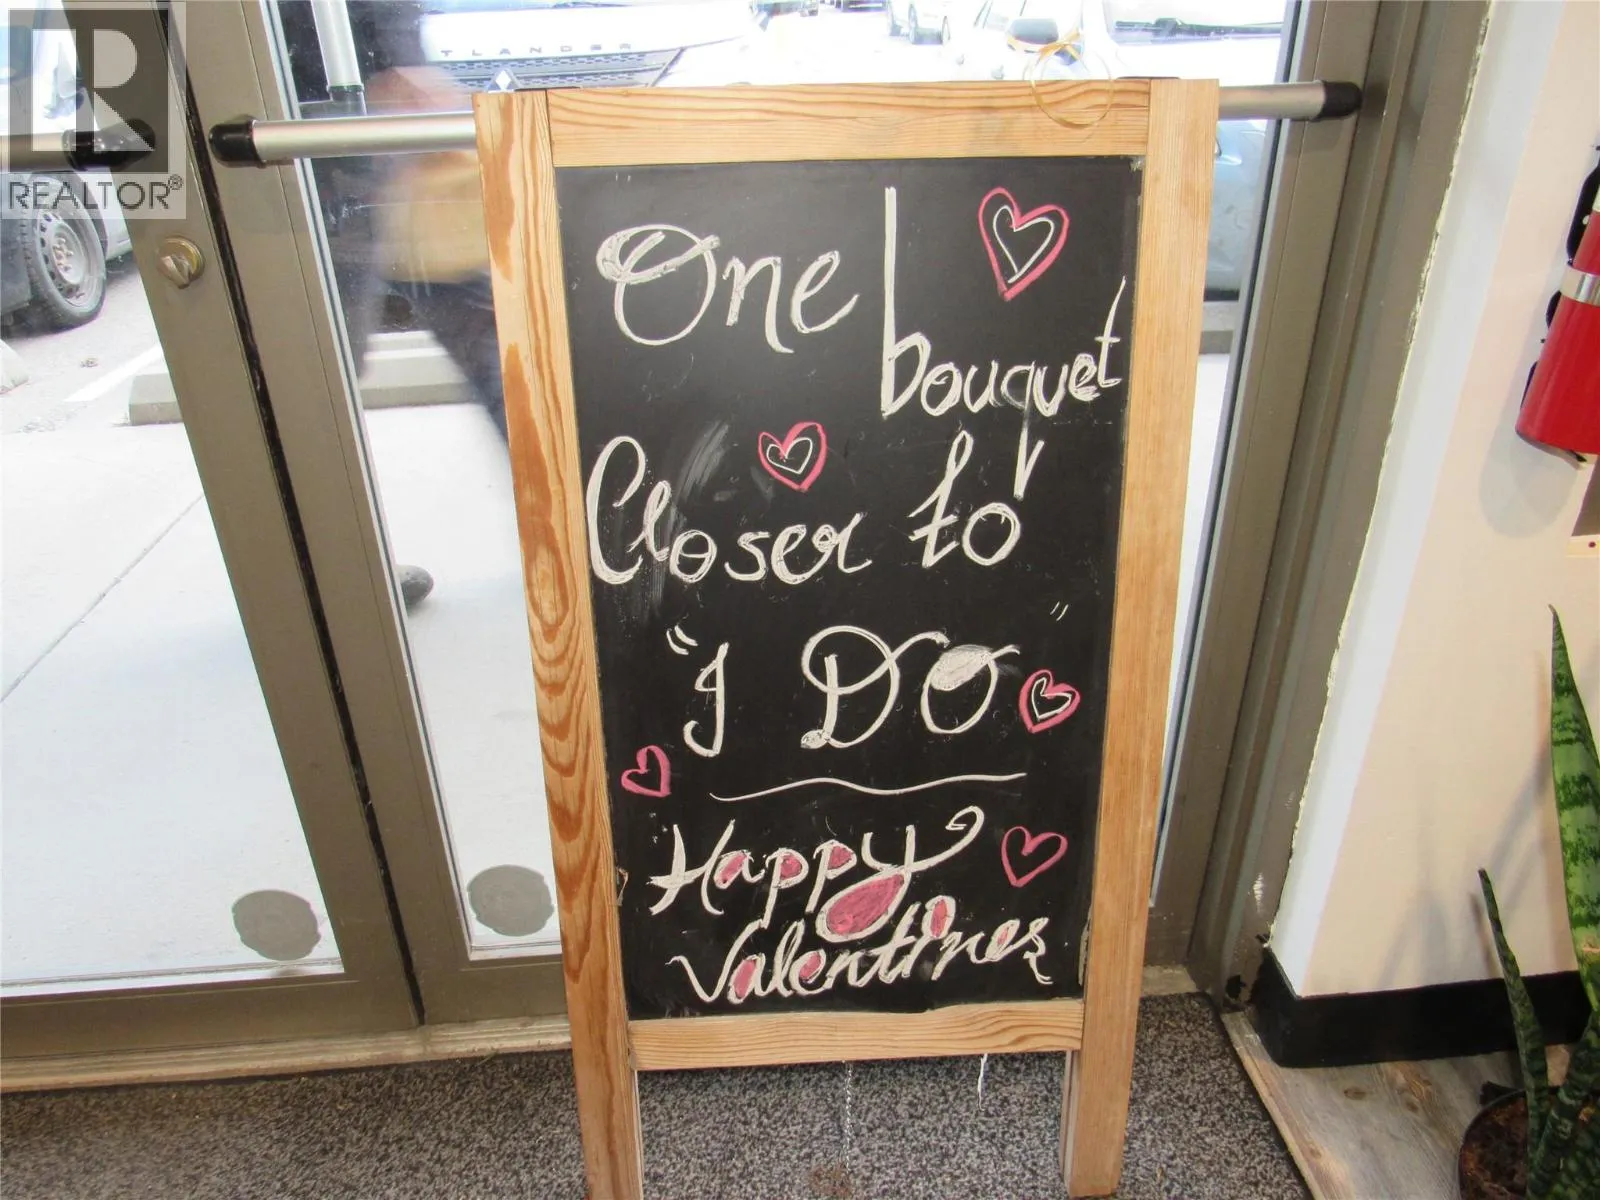 TLANDER
R
REALTOR®
One bouquet
Closer to
"I DO"
Happy
Valentines